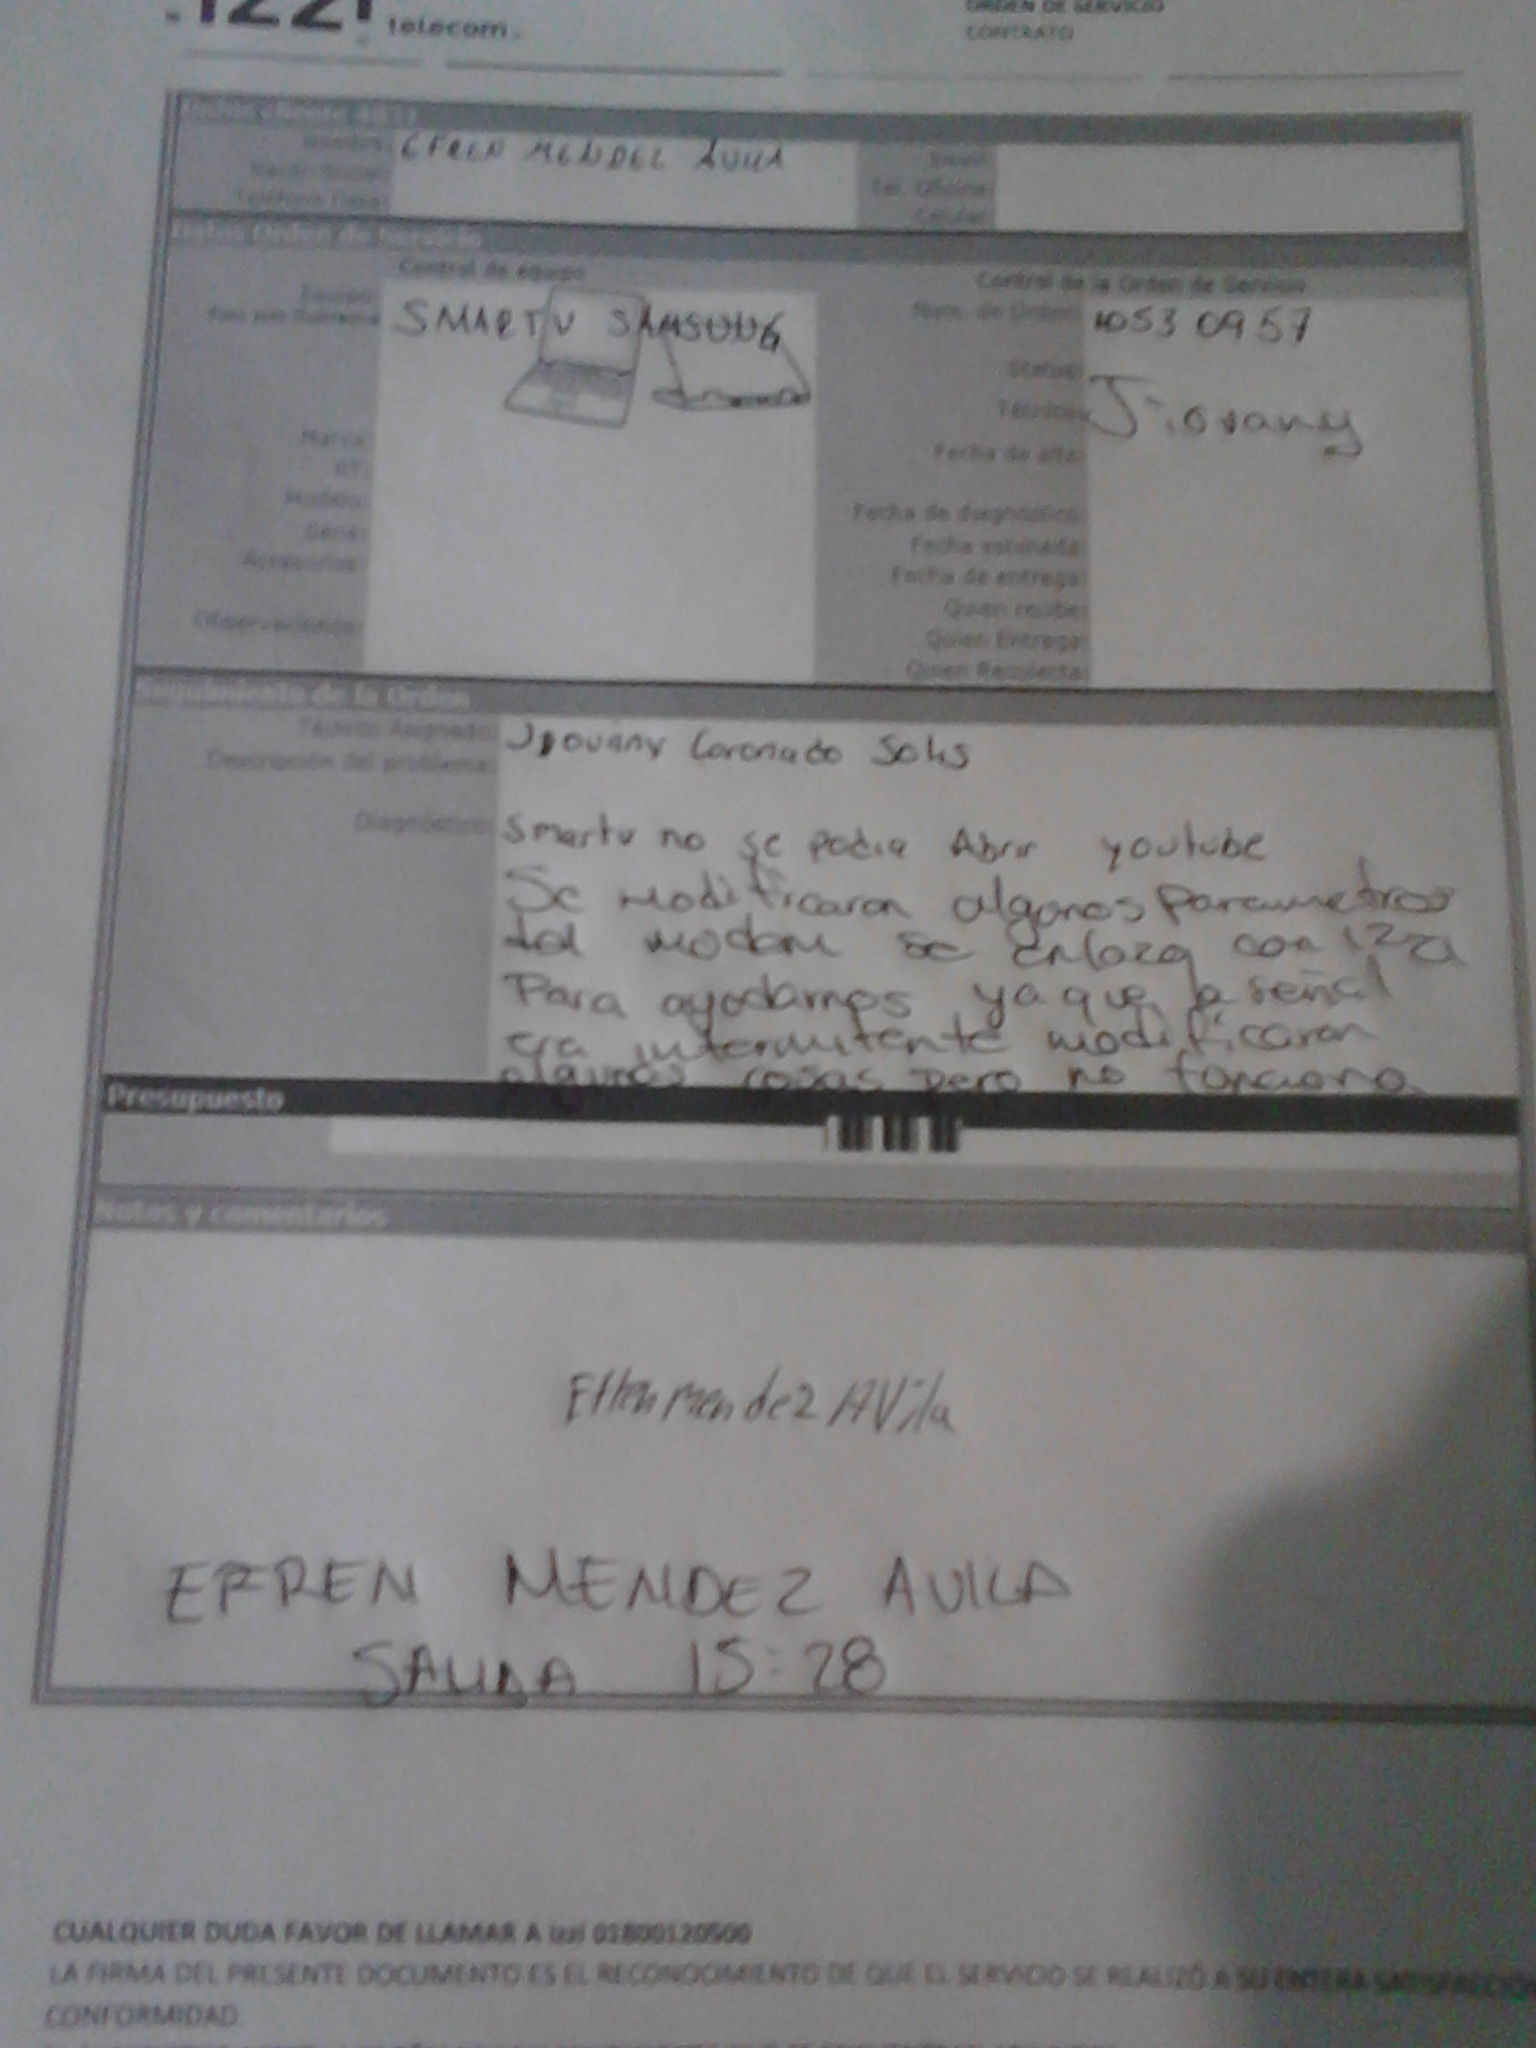 izzi telecom.
ORDEN DE SERVICIO
CONTRATO
Nombre: EFREN MENDEZ AVILA
Razón Social:
Teléfono Casa:
Email:
Tel. Oficina:
Celular:
Datos Orden de Servicio
Control de equipo
Equipo: SMARTV SAMSUUG
Marca:
Modelo:
Serie:
Accesorios:
Observaciones:
Control de la Orden de Servicio
Num. de Orden: 1053 0957
Status:
Técnico: Jiovany
Fecha de alta:
Fecha de diagnóstico:
Fecha estimada:
Fecha de entrega:
Quien recibe:
Quien Entrega:
Quien Recolecta:
Seguimiento de la Orden
Técnico Asignado: Jiovany Coronado Solis
Descripción del problema:
Diagnóstico: Smartv no se podia Abrir youtube
Se modificaron algunos parametros
del modem se enlaza con izzi
Para ayudarnos ya que la señal
era intermitente modificaron
algunas cosas pero no funciono
Presupuesto
Notas y comentarios
Efren Mendez AVila
EFREN MENDEZ AVILA
SALIDA 15:28
CUALQUIER DUDA FAVOR DE LLAMAR A izzi 01800120500
LA FIRMA DEL PRESENTE DOCUMENTO ES EL RECONOCIMIENTO DE QUE EL SERVICIO SE REALIZÓ A SU ENTERA SATISFACCIÓN
CONFORMIDAD.